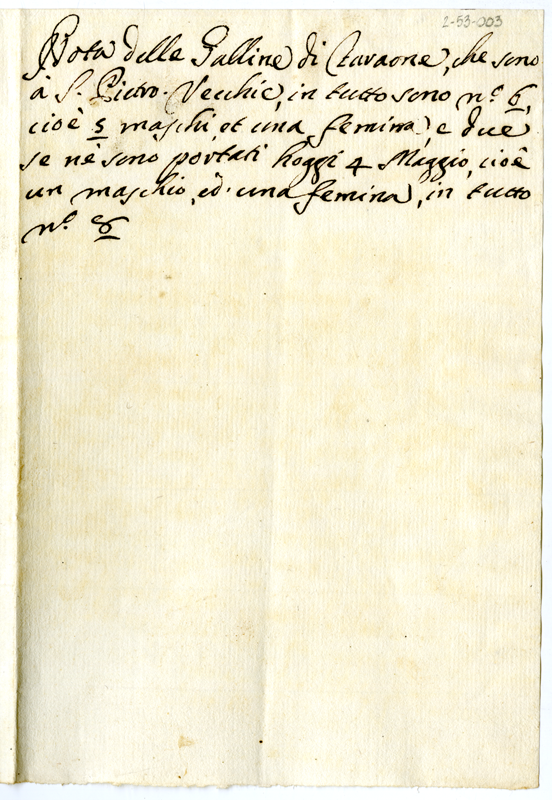 2-53-003
Nota delle Galline di Tavaone, che sono
à S. Pietro Vecchie, in tutto sono n.º 6,
cioè 5 maschi et una femina, e due
se nè sono portati hoggi 4 Maggio, cioè
un maschio, ed' una femina, in tutto
n.º 8